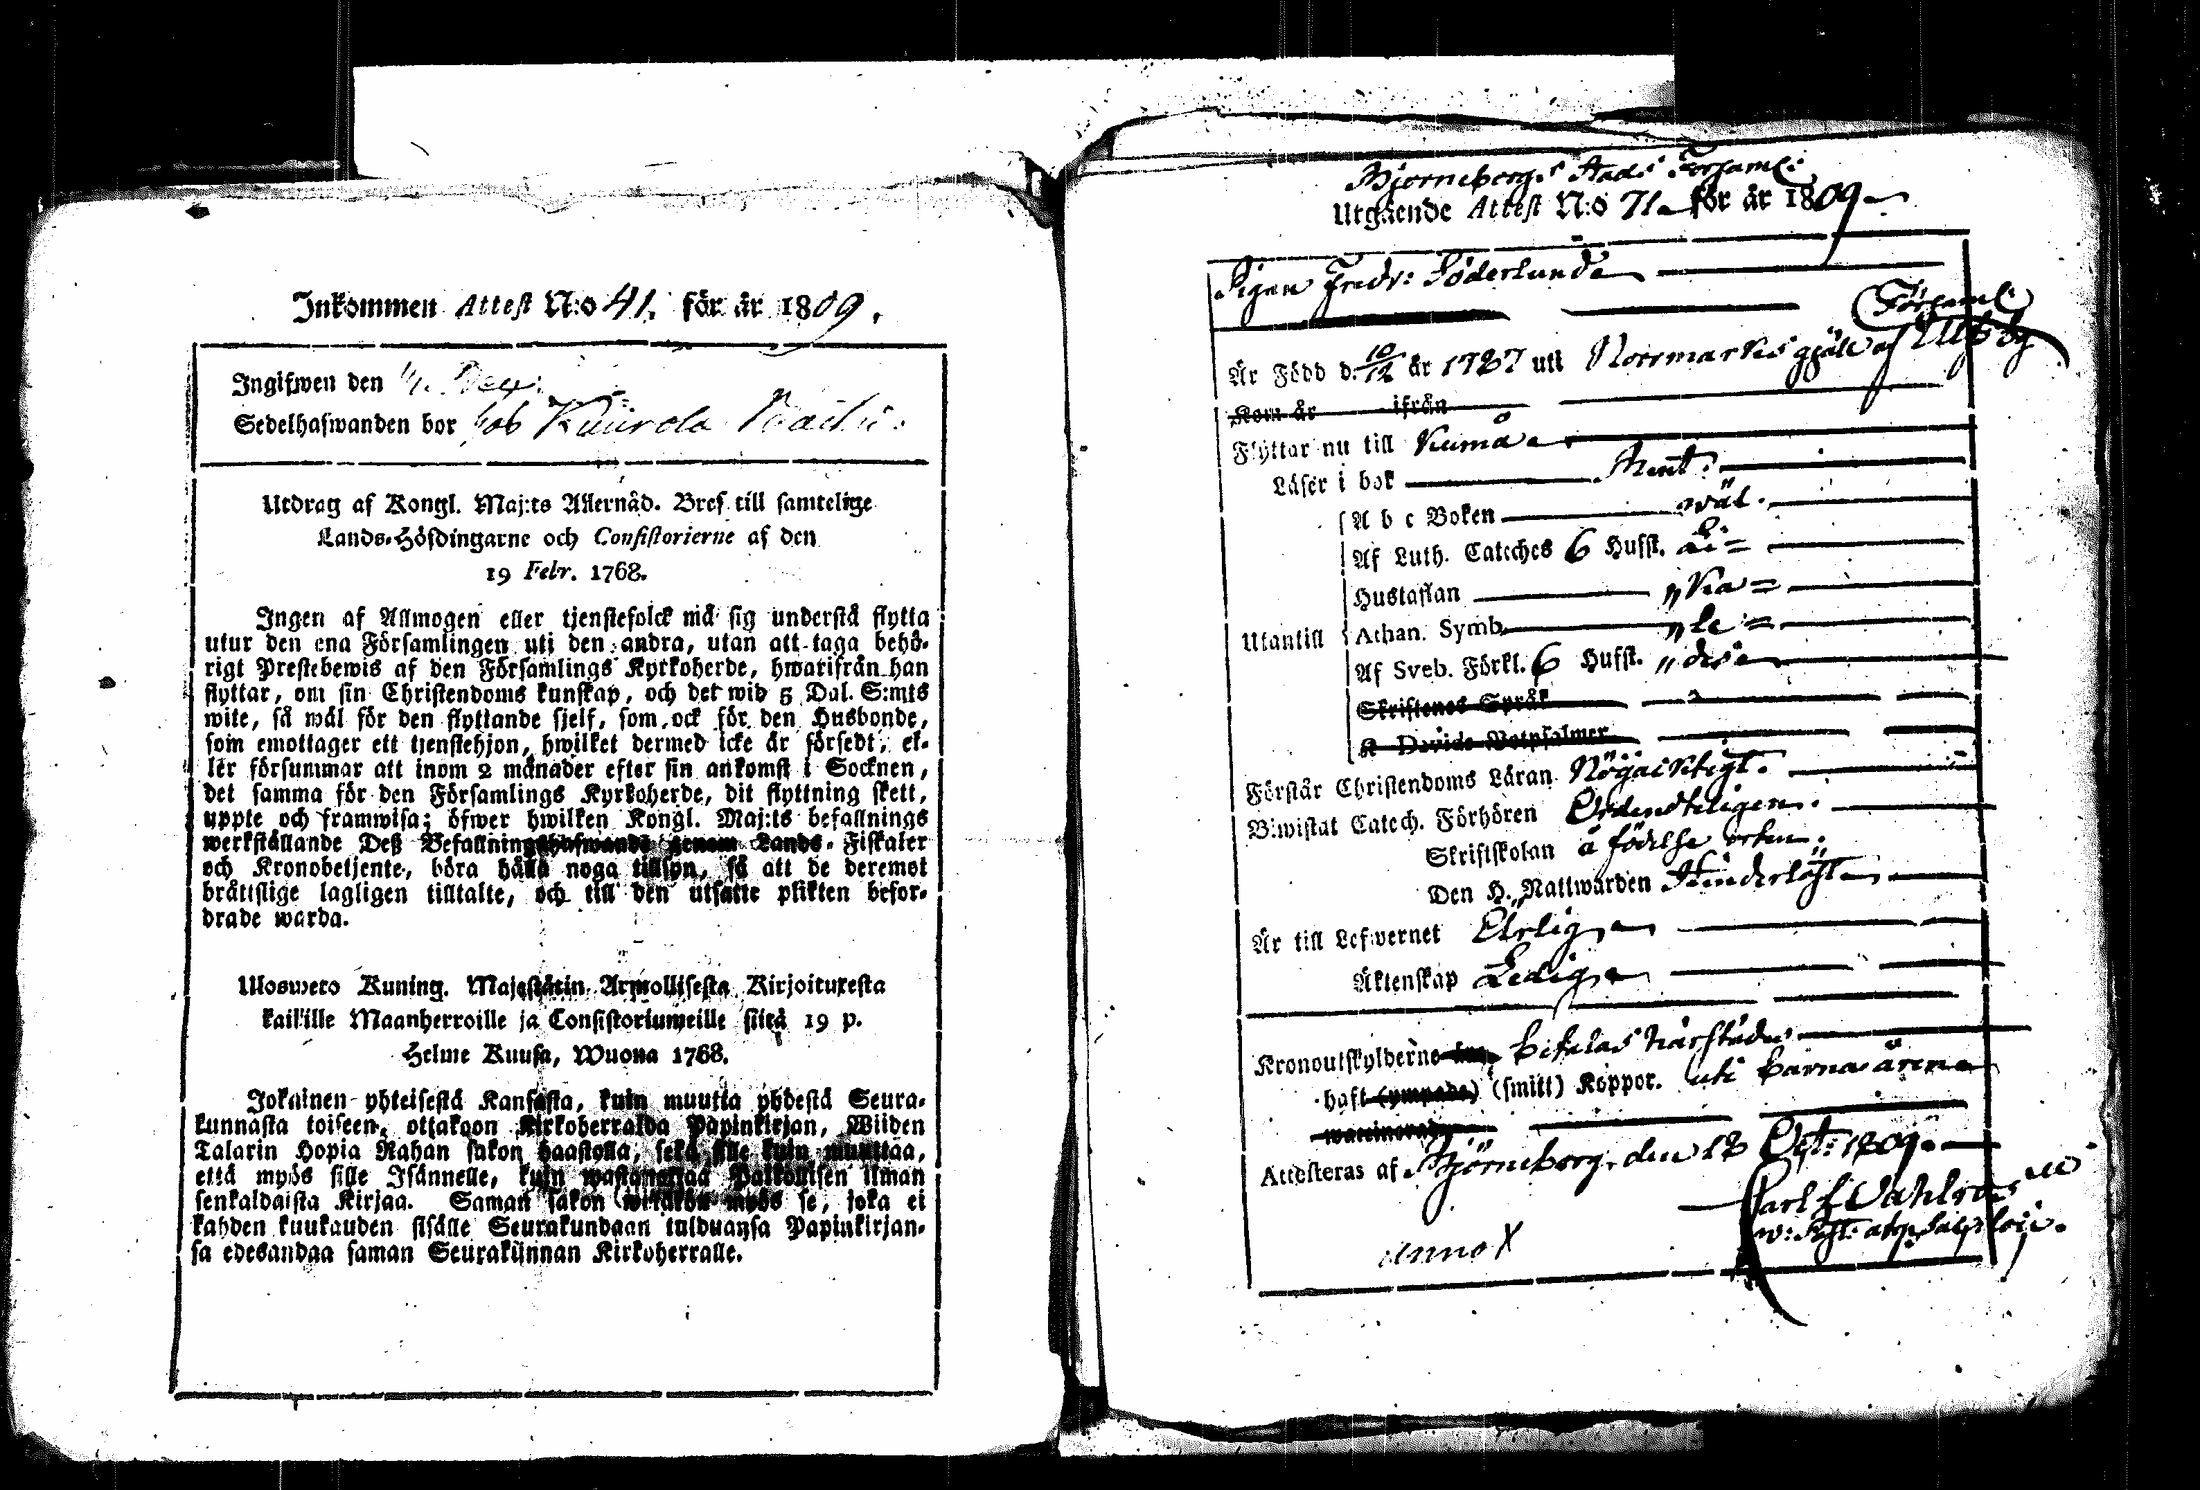 Inkommen Attest N:o 41. för år 1809.
Ingifwen den
Sedelhafwanden bor hos
Utdrag af Kongl. Maj:ts Allernåd. Bref till samtelige
Lands-Höfdingarne och Consistorierne af den
19 Febr. 1768.
Ingen af Allmogen eller tjenstefolck må sig understå flytta
utur den ena Församlingen uti den andra, utan att taga behö-
rigt Prestebewis af den Församlings Kyrkoherde, hwarifrån han
flyttar, om sin Christendoms kunskap, och det wid 5 Dal. S:mts
wite, så wäl för den flyttande sjelf, som ock för den Husbonde,
som emottager ett tjenstehjon, hwilket dermed icke är försedt, el-
ler försummar att inom 2 månader efter sin ankomst i Socknen,
det samma för den Församlings Kyrkoherde, dit flyttning skett,
uppte och framwisa; öfwer hwilken Kongl. Maj:ts befallnings
werkställande Deß Befallningshafwande genom Lands-Fiskaler
och Kronobetjente, böra hålla noga tillsyn, så att de deremot
bråttslige lagligen tilltalte, och till den utsatte plikten befor-
drade warda.
Uloswero Kuning. Majestätin Armollisesta Kirjoituxesta
kaikille Maanherroille ja Consistoriumeille siitä 19 p.
Helme Kuusa, Wuona 1768.
Jokainen yhteisestä Kansasta, kuin muutta yhdestä Seura-
kunnasta toiseen, ottakoon Kirkoherralda Papinkirjan, Wiiden
Talarin Hopia Rahan sakon haastolla, sekä sille kuin muuttaa,
että myös sille Isännelle, kuin wastanottaa Palkollisen ilman
senkaldaista Kirjaa. Saman sakon wikäkön myös se, joka ei
kahden kuukauden sisälle Seurakundaan tulduansa Papinkirjan-
sa edesandaa saman Seurakunnan Kirkoherralle.
Björneborgs Stads Församl:
Utgående Attest N:o 71 för år 1809
Pigan Fredr: Söderlund
Församl:
Är Född d. 10/12 år 1787 uti Norrmarks gjäll af Ulfsby
Kom år ifrån
Flyttar nu till Kumå
Läser i bok
A b c Boken wäl.
Af Luth. Cateches 6 Hufst.
Hustaflan
Utantill Athan. Symb.
Af Sveb. Förkl. 6 Hufst.
Skriftenes Språk
K Davids Botpsalmer
Förstår Christendoms Läran Nögaicktigt.
Biwistat Catech. Förhören Ordendteligen.
Skriftskolan å födelse orten.
Den H. Nattwarden Hinderlöst
Är till Lefwernet Ehrlig
Äktenskap Ledig
Kronoutskylderne betalas härstädes
haft (ympade) (smitt) Koppor. uti barna åren
Attesteras af Björneborg den 18 Oct: 1809.